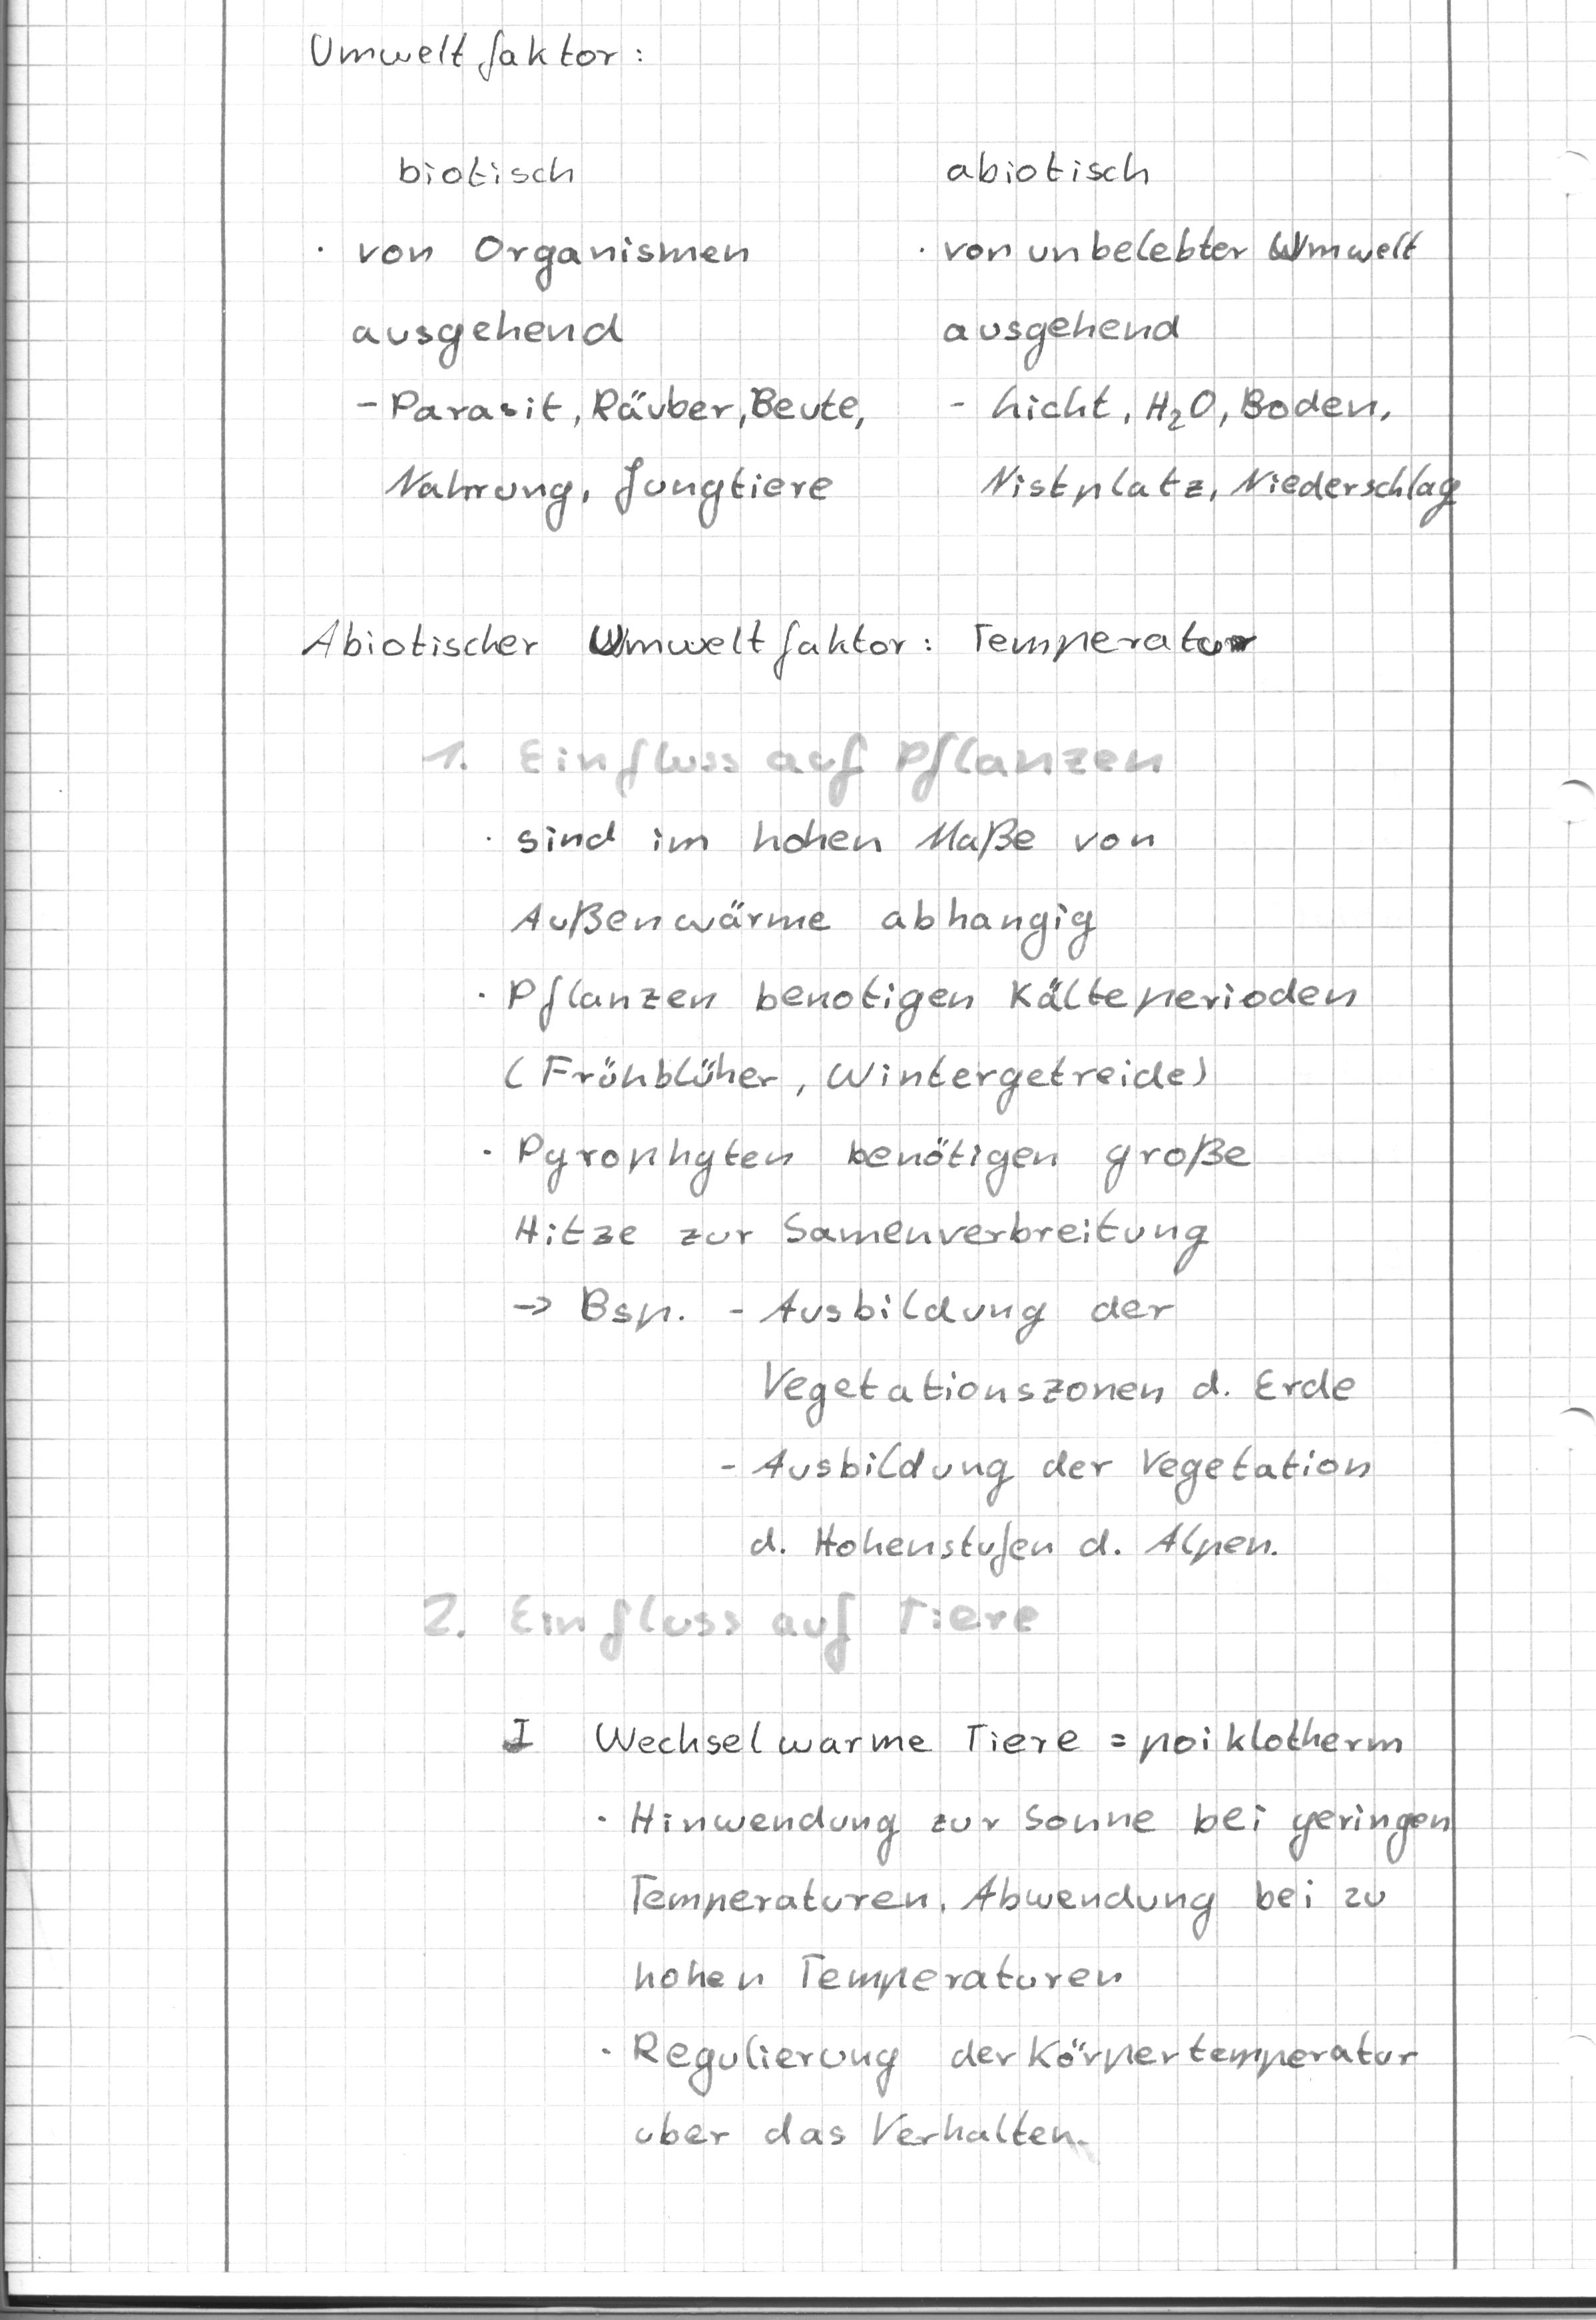 Umweltfaktor:
biotisch abiotisch
· von Organismen · von unbelebter Umwelt
ausgehend ausgehend
- Parasit, Räuber, Beute, - Licht, H₂O, Boden,
Nahrung, Jungtiere Nistplatz, Niederschlag
Abiotischer Umweltfaktor: Temperatur
1. Einfluss auf Pflanzen
· sind im hohen Maße von
Außenwärme abhangig
· Pflanzen benotigen Kälteperioden
(Frühblüher, Wintergetreide)
· Pyrophyten benötigen große
Hitze zur Samenverbreitung
→ Bsp. - Ausbildung der
Vegetationszonen d. Erde
- Ausbildung der Vegetation
d. Hohenstufen d. Alpen.
2. Einfluss auf Tiere
I Wechselwarme Tiere = poiklotherm
· Hinwendung zur Sonne bei geringen
Temperaturen, Abwendung bei zu
hohen Temperaturen
· Regulierung der Körpertemperatur
uber das Verhalten.